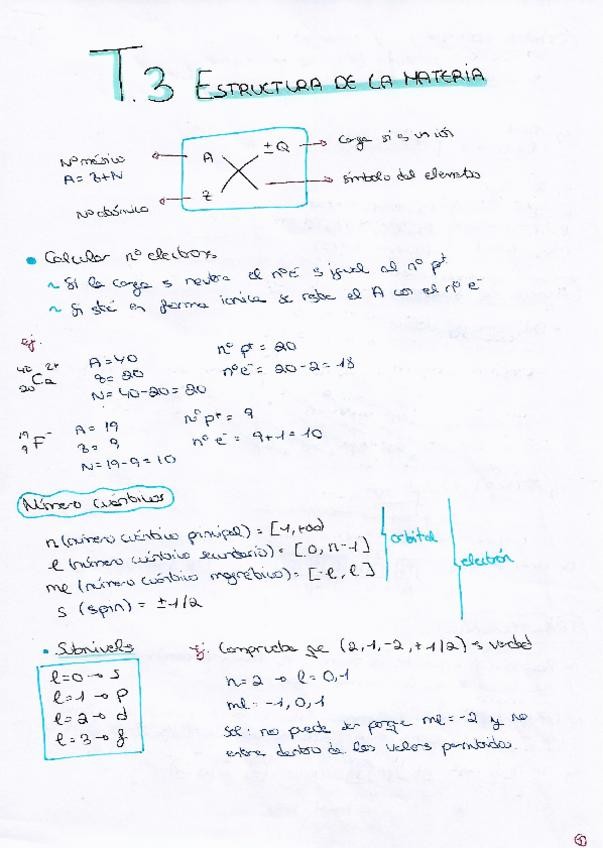 T.3 ESTRUCTURA DE LA MATERIA
Nº másico
A = Z+N
Nº atómico
A ±Q
Z X
Carga si es un ión
símbolo del elemento
• Calcular nº electrons
~ Si la carga s neutra el nº e⁻ s igual al nº p⁺
~ Si sté en forma iónica se resta el A con el nº e⁻
ej.
⁴⁰₂₀Ca²⁺
A = 40
Z = 20
N = 40-20 = 20
nº p⁺ = 20
nº e⁻ = 20-2 = 18
¹⁹₉F⁻
A = 19
Z = 9
N = 19-9 = 10
nº p⁺ = 9
nº e⁻ = 9+1 = 10
Número cuánticos
n (número cuántico principal) = [1, +∞)
l (número cuántico secundario) = [0, n-1]
ml (número cuántico magnético) = [-l, l]
s (spin) = ±1/2
orbital
electrón
• Subnivels
l=0 → s
l=1 → p
l=2 → d
l=3 → f
ej. Comprueba qe (2,1,-2,+1/2) s verdad
n=2 → l=0,1
ml = -1,0,1
Sol: no puede ser porqe ml=-2 y no
entra dentro de los valors permitidos.
1